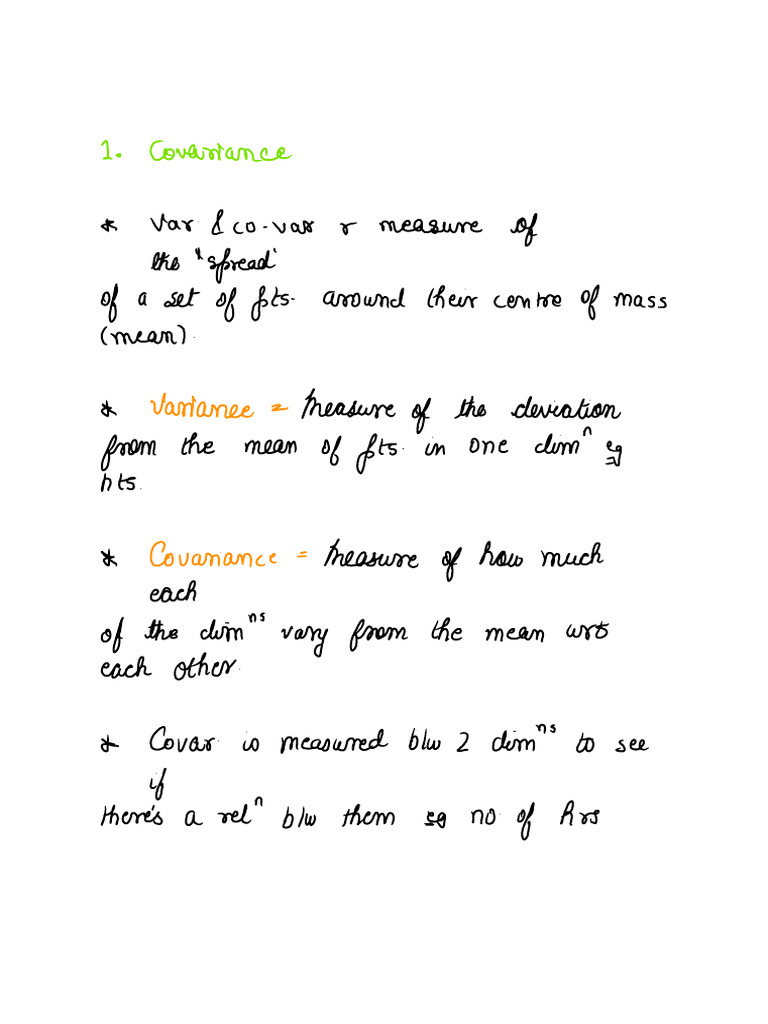 1. Covariance
* Var & co-var r measure of
the "spread"
of a set of pts. around their centre of mass
(mean).
* Variance = Measure of the deviation
from the mean of pts. in one dimⁿ eg
hts.
* Covariance = Measure of how much
each
of the dimⁿˢ vary from the mean wrt
each other.
* Covar is measured b/w 2 dimⁿˢ to see
if
there's a relⁿ b/w them eg no of hrs